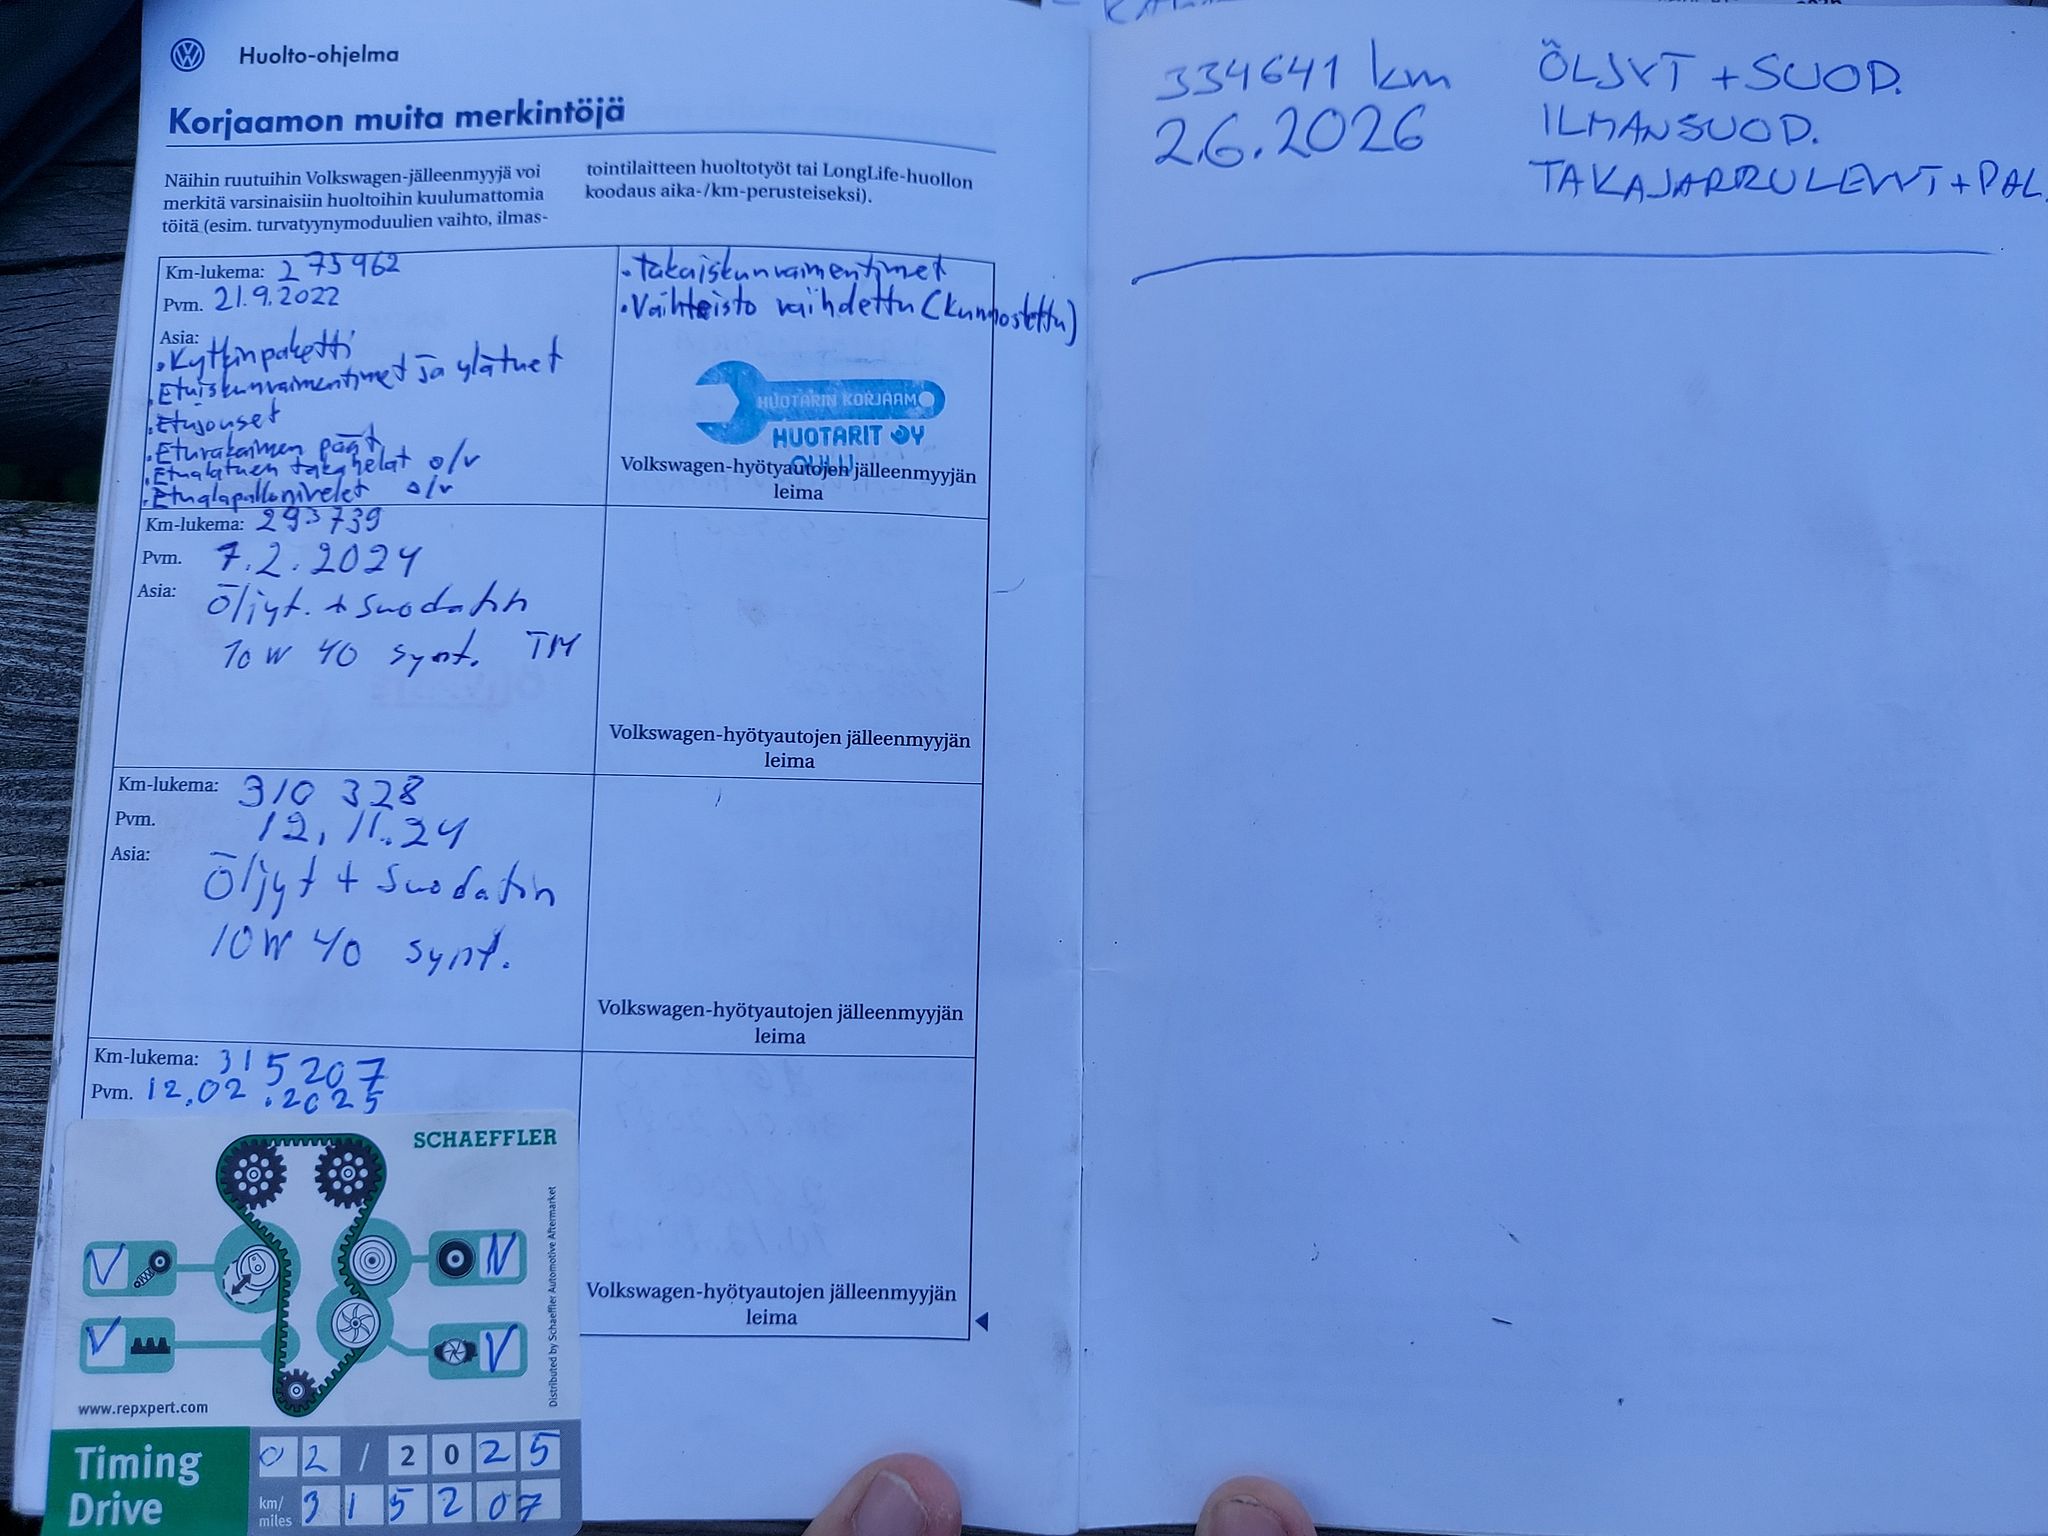 Huolto-ohjelma
Korjaamon muita merkintöjä
Näihin ruutuihin Volkswagen-jälleenmyyjä voi
merkitä varsinaisiin huoltoihin kuulumattomia
töitä (esim. turvatyynymoduulien vaihto, ilmas-
tointilaitteen huoltotyöt tai LongLife-huollon
koodaus aika-/km-perusteiseksi).
Km-lukema: 275962
Pvm. 21.9.2022
Asia:
• Kytkinpaketti
• Etuiskunvaimentimet ja ylätuet
• Etujouset
• Eturakaimen päät
• Etualatuen takahelat o/v
• Etualapallonivelet o/v
• Takaiskunvaimentimet
• Vaihteisto vaihdettu (kunnostettu)
HUOTARIN KORJAAMO
HUOTARIT OY
OULU
Volkswagen-hyötyautojen jälleenmyyjän
leima
Km-lukema: 293739
Pvm. 7.2.2024
Asia: Öljyt. + Suodatin
10W 40 synt. TM
Volkswagen-hyötyautojen jälleenmyyjän
leima
Km-lukema: 310 328
Pvm. 12.11.24
Asia: Öljyt + Suodatin
10W 40 synt.
Volkswagen-hyötyautojen jälleenmyyjän
leima
Km-lukema: 315207
Pvm. 12.02.2025
Volkswagen-hyötyautojen jälleenmyyjän
leima
SCHAEFFLER
Distributed by Schaeffler Automotive Aftermarket
www.repxpert.com
Timing
Drive
02 / 2025
km/
miles
315207
334641 km
2.6.2026
ÖLJYT + SUOD.
ILMANSUOD.
TAKAJARRULEVYT + PAL.